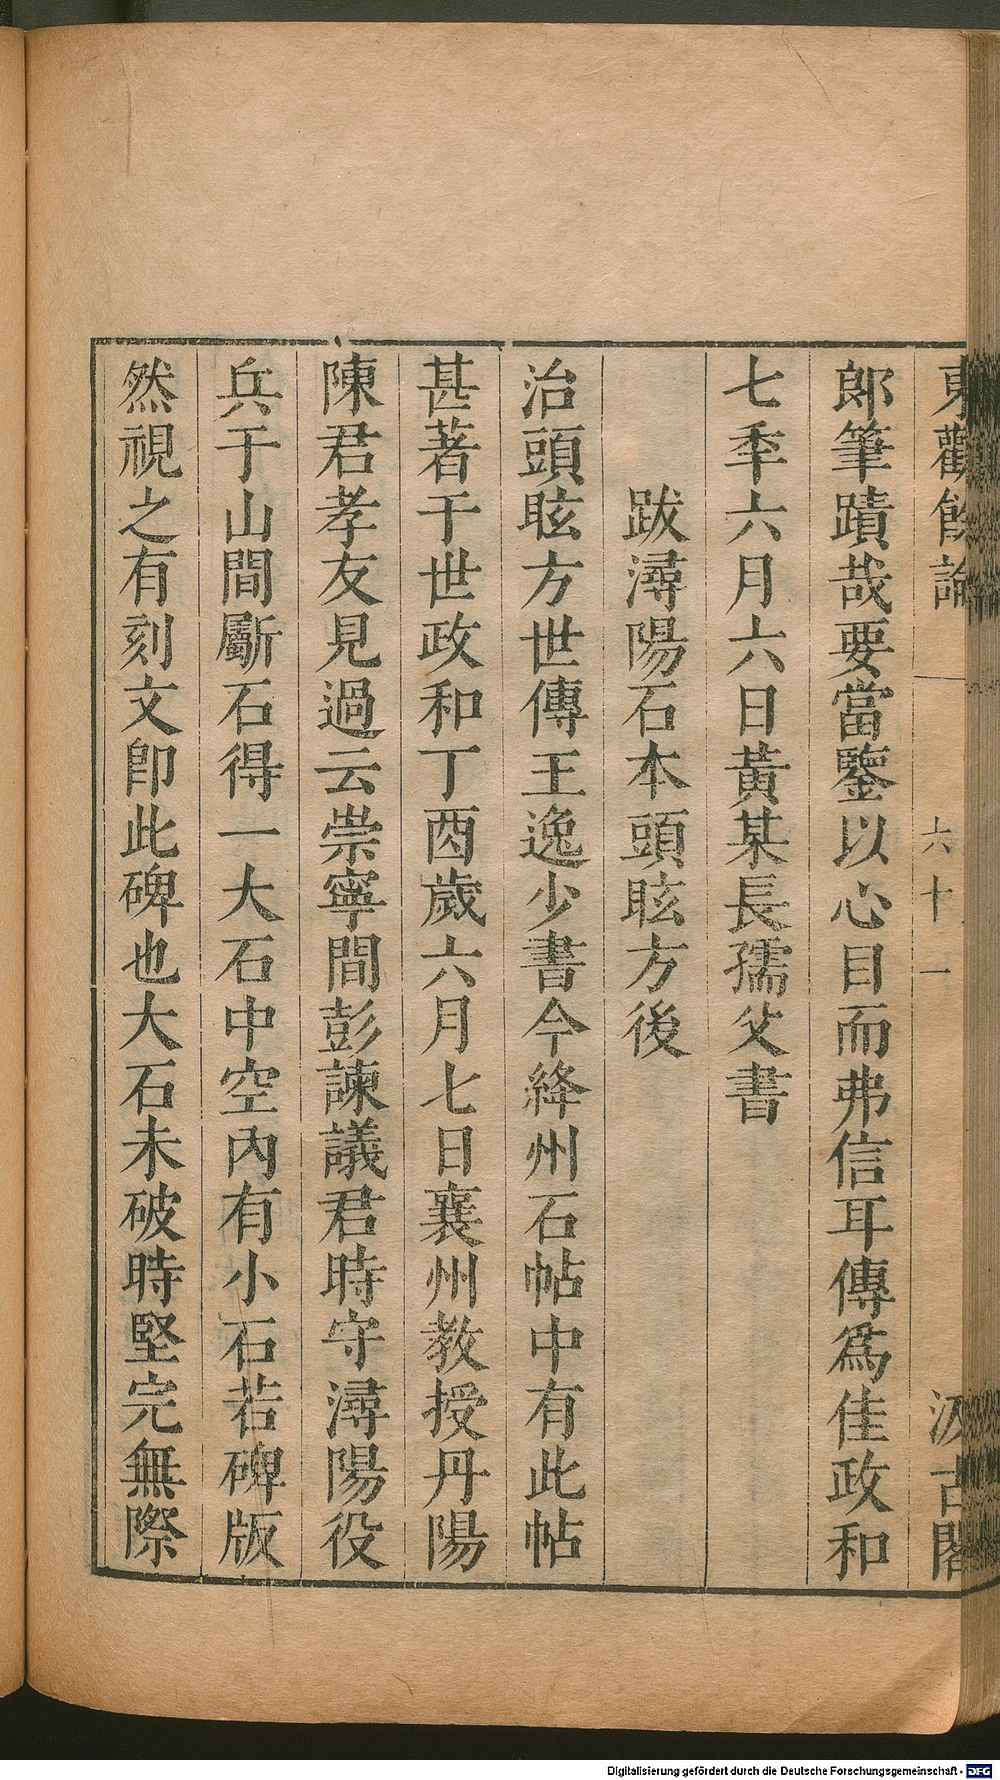 東觀餘論 六十一 汲古閣
郎筆蹟哉要當鑒以心目而弗信耳傳爲佳政和
七秊六月六日黃某長孺父書
跋潯陽石本頭眩方後
治頭眩方世傳王逸少書今絳州石帖中有此帖
甚著于世政和丁酉歲六月七日襄州教授丹陽
陳君孝友見過云崇寧間彭諫議君時守潯陽役
兵于山間斸石得一大石中空內有小石若碑版
然視之有刻文卽此碑也大石未破時堅完無際
Digitalisierung gefördert durch die Deutsche Forschungsgemeinschaft - DFG